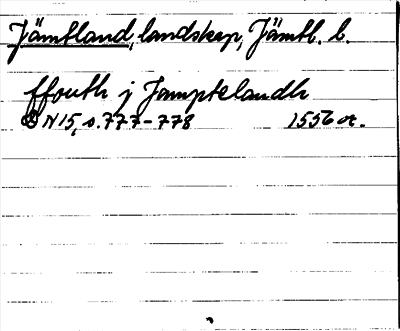 Jämtland, landskap, Jämtl. l.
ffouth j Jamptelandh
DN 15, s. 777-778 1556 or.